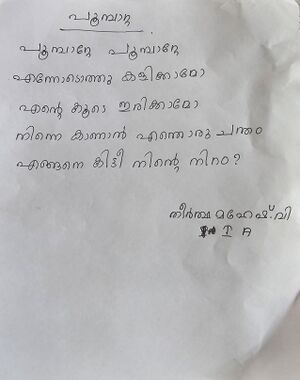 പൂമ്പാറ്റ
പൂമ്പാറ്റേ പൂമ്പാറ്റേ
എന്നോടൊത്തു കളിക്കാമോ
എന്റെ കൂടെ ഇരിക്കാമോ
നിന്നെ കാണാൻ എന്തൊരു ചന്തം
എങ്ങനെ കിട്ടീ നിന്റെ നിറം?
തീർത്ഥ മഹേഷ്.വി
I A